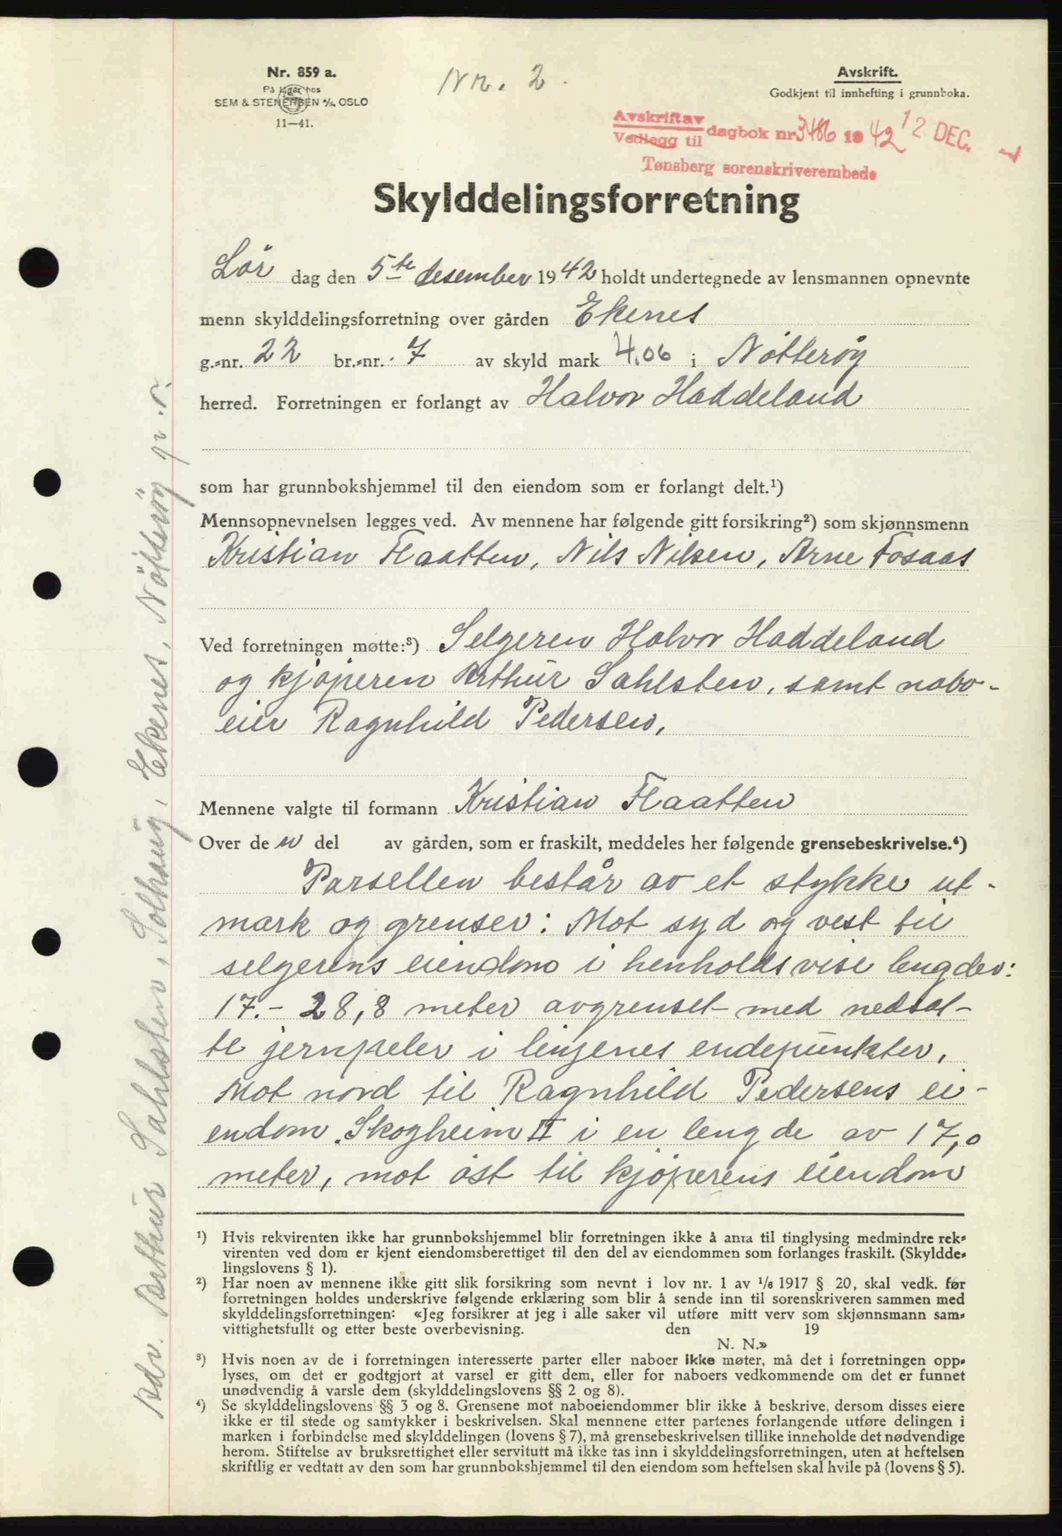 Nr. 859 a.
På lager hos
SEM & STENERSEN A/S, OSLO
11—41.
Nr. 2.
Avskrift.
Godkjent til innhefting i grunnboka.
Avskrift av
Vedlegg til dagbok nr. 3486 1942 12 DEC.
Tønsberg sorenskriverembede
Skylddelingsforretning
Lör dag den 5te desember 1942 holdt undertegnede av lensmannen opnevnte
menn skylddelingsforretning over gården Ekenes
g.-nr. 22 br.-nr. 7 av skyld mark 4,06 i Nötteröy
herred. Forretningen er forlangt av Halvor Haddeland
som har grunnbokshjemmel til den eiendom som er forlangt delt.¹)
Mennsopnevnelsen legges ved. Av mennene har følgende gitt forsikring²) som skjønnsmenn
Kristian Flaatten, Nils Nilsen, Arne Fosaas
Ved forretningen møtte:³) Selgeren Halvor Haddeland
og kjöperen Arthur Sahlsten, samt nabo-
eier Ragnhild Pedersen,
Mennene valgte til formann Kristian Flaatten
Over de n del av gården, som er fraskilt, meddeles her følgende grensebeskrivelse.⁴)
Parsellen består av et stykke ut-
mark og grenser: Mot syd og vest til
selgerens eiendom i henholdsvise lengder:
17.- 28,8 meter avgrenset med nedsat-
te jernpeler i linjenes endepunkter,
Mot nord til Ragnhild Pedersens ei-
endom Skogheim II i en lengde av 17,0
meter, mot öst til kjöperens eiendom
¹) Hvis rekvirenten ikke har grunnbokshjemmel blir forretningen ikke å anta til tinglysing medmindre rek-
virenten ved dom er kjent eiendomsberettiget til den del av eiendommen som forlanges fraskilt. (Skyldde-
lingslovens § 1).
²) Har noen av mennene ikke gitt slik forsikring som nevnt i lov nr. 1 av 1/6 1917 § 20, skal vedk. før
forretningen holdes underskrive følgende erklæring som blir å sende inn til sorenskriveren sammen med
skylddelingsforretningen: «Jeg forsikrer at jeg i alle saker vil utføre mitt verv som skjønnsmann sam-
vittighetsfullt og etter beste overbevisning. den 19
N. N.»
³) Hvis noen av de i forretningen interesserte parter eller naboer ikke møter, må det i forretningen opp-
lyses, om det er godtgjort at varsel er gitt dem, eller for naboers vedkommende om det er funnet
unødvendig å varsle dem (skylddelingslovens §§ 2 og 8).
⁴) Se skylddelingslovens §§ 3 og 8. Grensene mot naboeiendommer blir ikke å beskrive, dersom disses eiere
ikke er til stede og samtykker i beskrivelsen. Skal mennene etter partenes forlangende utføre delingen i
marken i forbindelse med skylddelingen (lovens § 7), må grensebeskrivelsen tillike inneholde det nødvendige
herom. Stiftelse av bruksrettighet eller servitutt må ikke tas inn i skylddelingsforretningen, uten at heftelsen
skriftlig er vedtatt av den som har grunnbokshjemmel til den eiendom som heftelsen skal hvile på (lovens § 5).
Adr. Arthur Sahlsten, Solhaug, Ekenes, Nötteröy p. r.